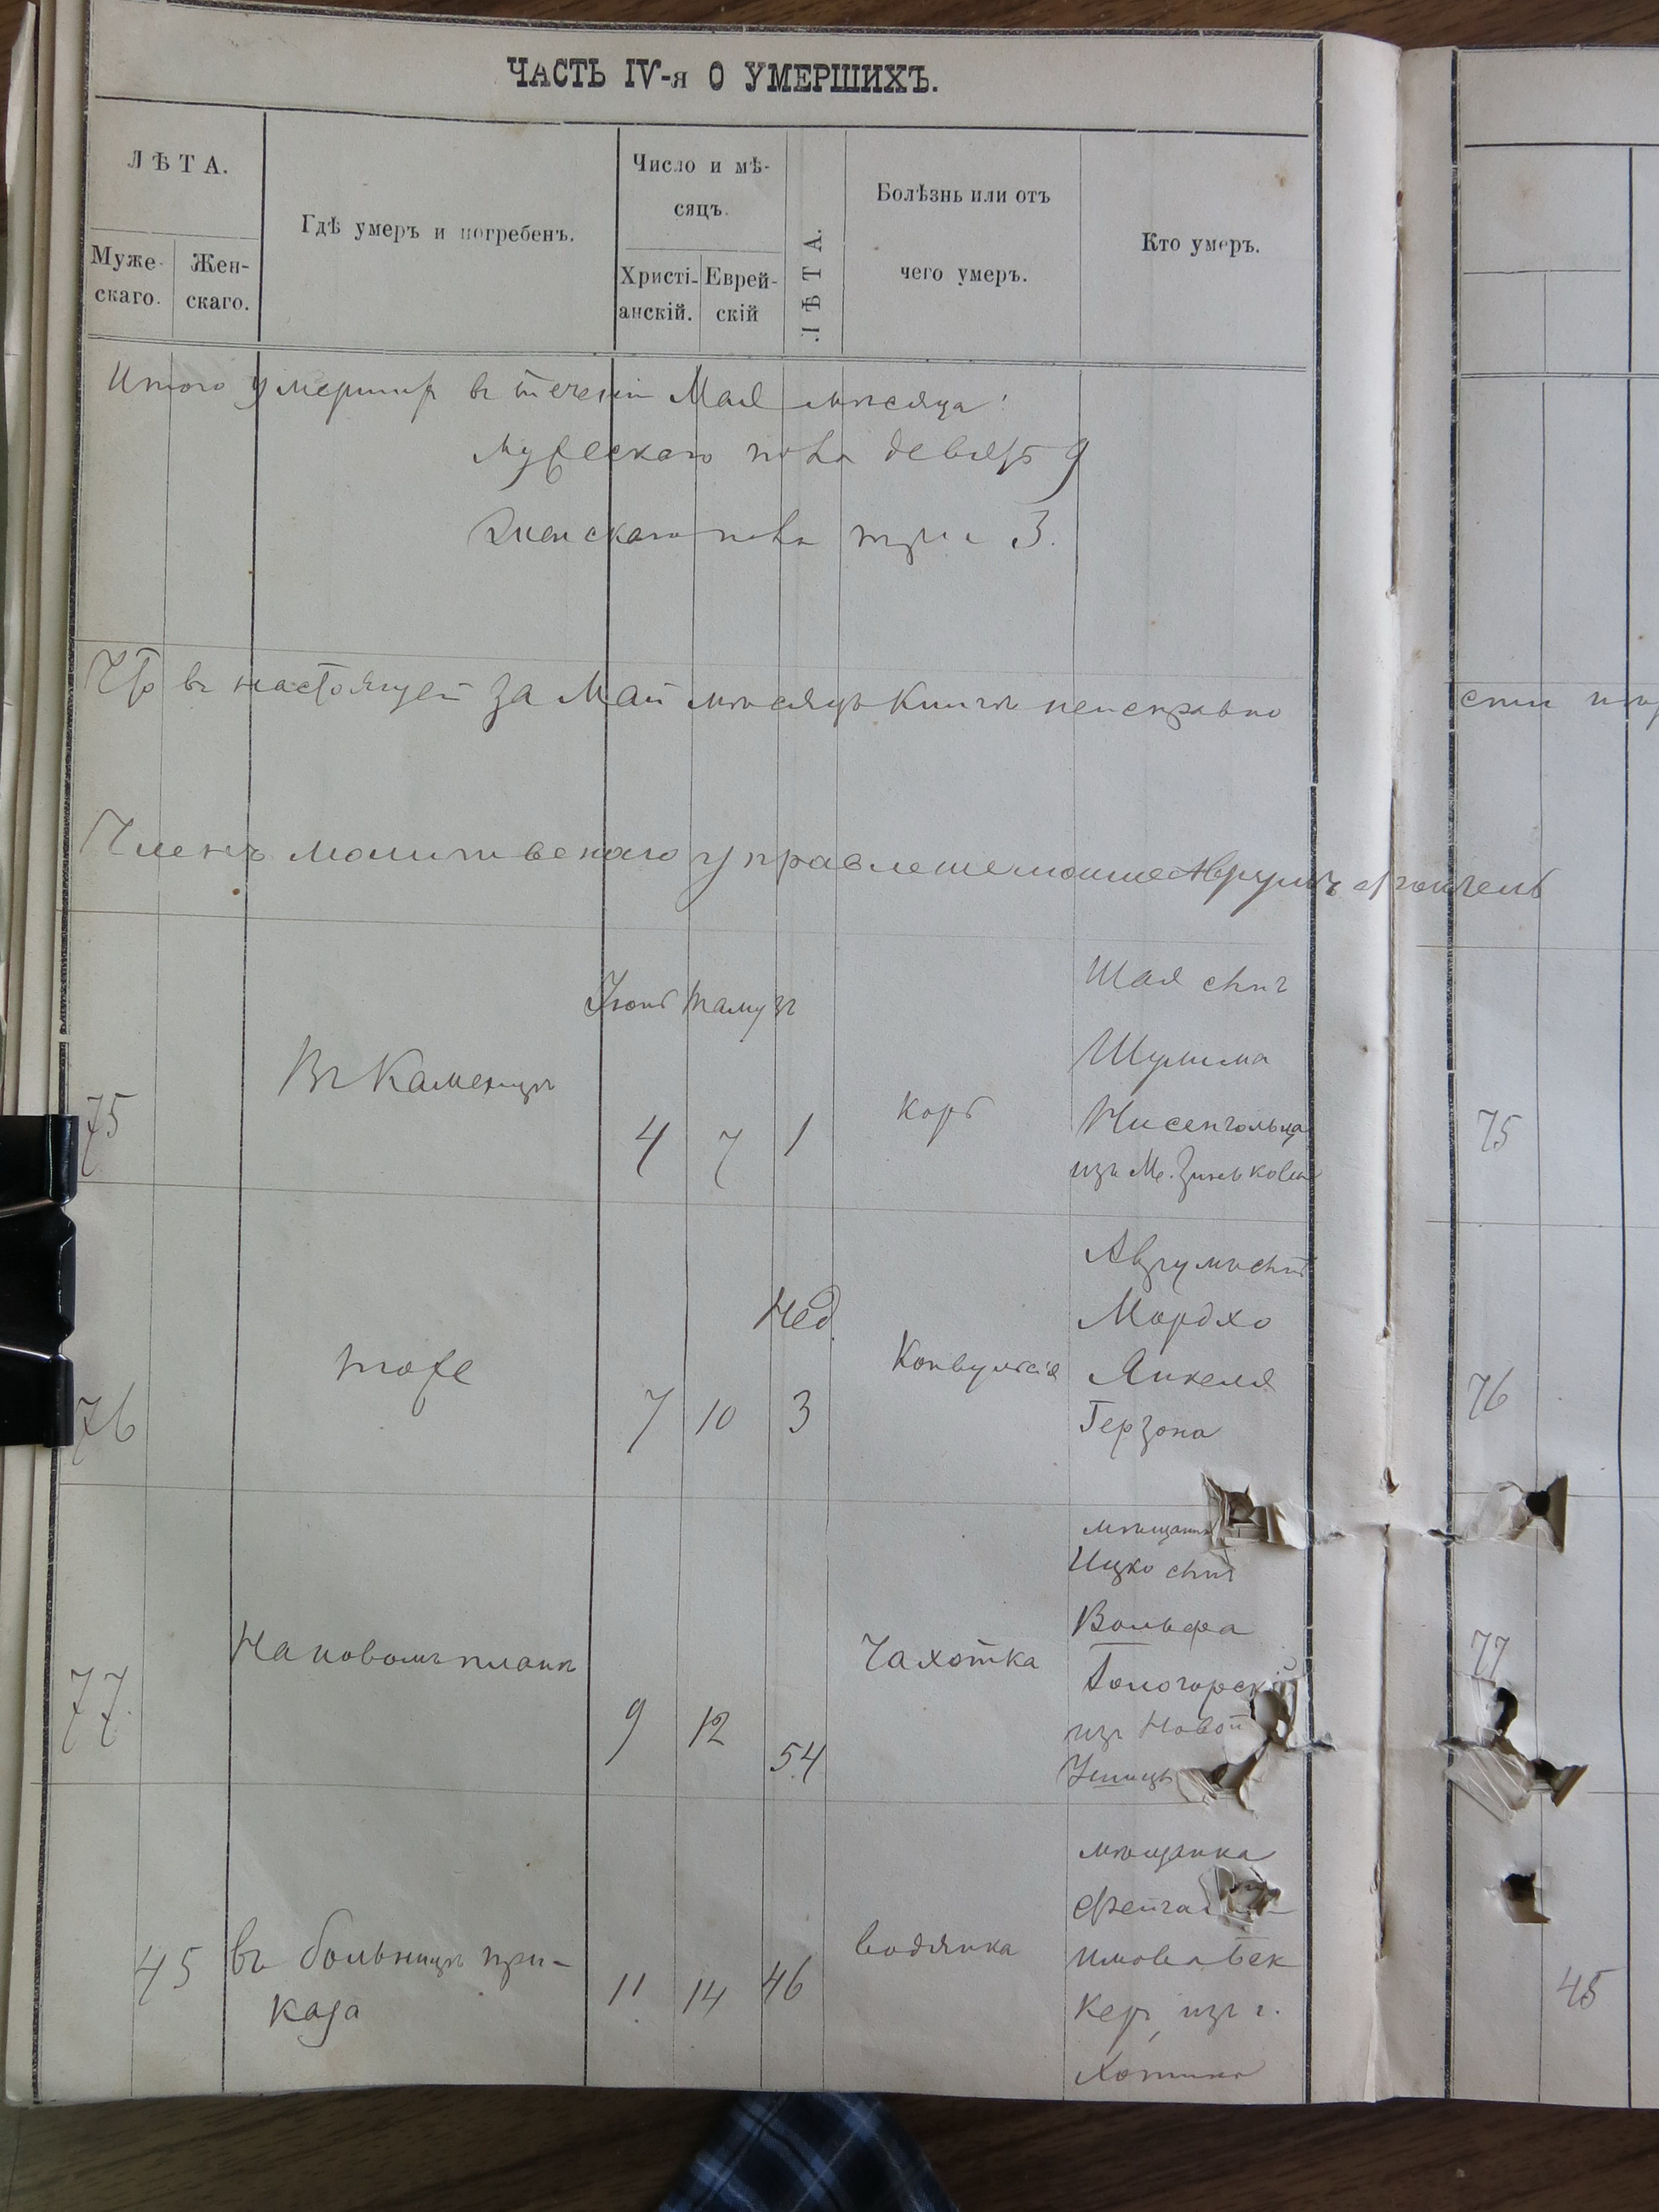 ЧАСТЬ IV-я О УМЕРШИХЪ.
ЛѢТА.
Муже-
скаго.
Жен-
скаго.
Гдѣ умеръ и погребенъ.
Число и мѣ-
сяцъ.
Христі-
анскій.
Еврей-
скій
ЛѢТА.
Болѣзнь или отъ
чего умеръ.
Кто умеръ.
Итого умершихъ въ теченіи Мая мѣсяца:
мужескаго пола девять 9
Женскаго пола три 3.
Что въ настоящей за Май мѣсяцъ книгѣ неисправно
сти
Членъ молитвенаго управленія Мошко Аврумъ
Іюнь Тамузъ
75
Въ Каменцѣ
4 7 1
Корь
Шая сынъ
Шулима
Нисенгольца
изъ М. Зиньковец
75
76
тоже
Нед.
7 10 3
Конвульсія
Аврумъ сынъ
Мордхо
Янкеля
Герзона
76
77
На новомъ планѣ
9 12 54
Чахотка
мѣщанинъ
Ицко сынъ
Вольфа
Гологорскій
изъ Новой
Ушицы
77
45
въ больницѣ при-
каза
11 14 46
водянка
мѣщанка
Бек
Керъ изъ г.
Хотина
45